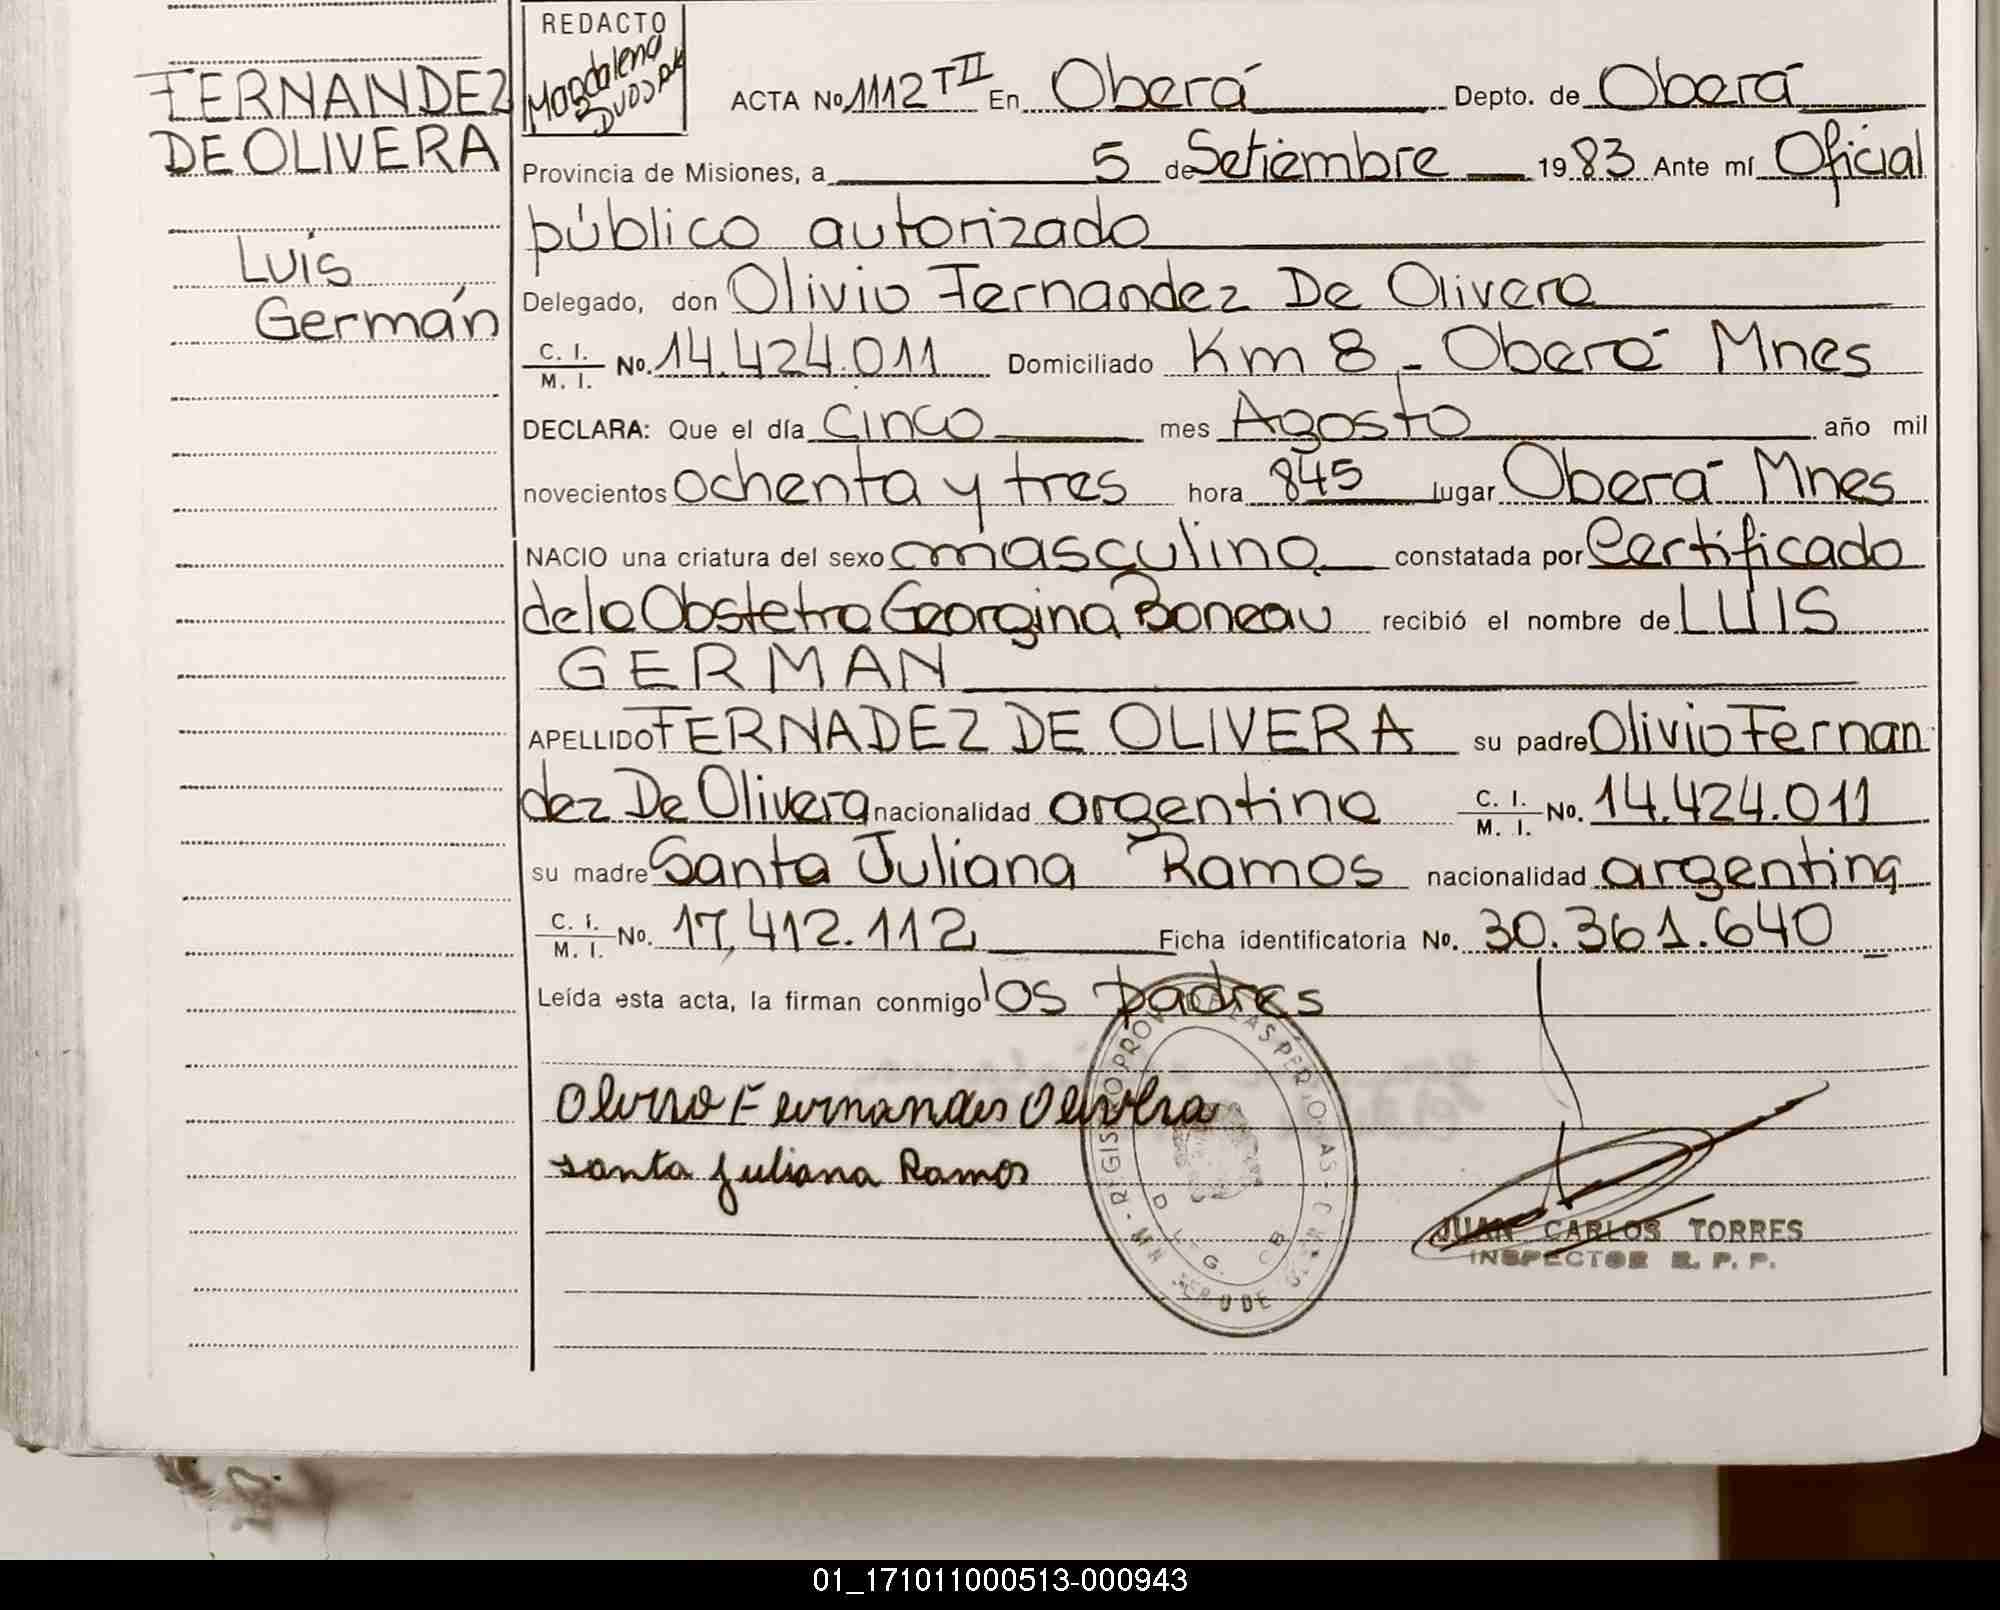 FERNANDEZ
DE OLIVERA
Luis
Germán
REDACTO
Magdalena
ACTA No. 1112 TII En Oberá Depto. de Oberá
Provincia de Misiones, a 5 de Setiembre 1983 Ante mí Oficial
público autorizado
Delegado, don Olivio Fernandez De Olivera
C. I. / M. I. No. 14.424.011 Domiciliado Km 8 - Oberá Mnes
DECLARA: Que el día cinco mes Agosto año mil
novecientos ochenta y tres hora 845 lugar Oberá Mnes
NACIO una criatura del sexo masculino constatada por Certificado
de la Obstetra Georgina Boneau recibió el nombre de LUIS
GERMAN
APELLIDO FERNADEZ DE OLIVERA su padre Olivio Fernan
dez De Olivera nacionalidad argentino C. I. / M. I. No. 14.424.011
su madre Santa Juliana Ramos nacionalidad argentina
C. I. / M. I. No. 17.412.112 Ficha identificatoria No. 30.361.640
Leída esta acta, la firman conmigo los padres
Olivio Fernandes Olivera
santa juliana Ramos
JUAN CARLOS TORRES
INSPECTOR R. P. P.
01_171011000513-000943